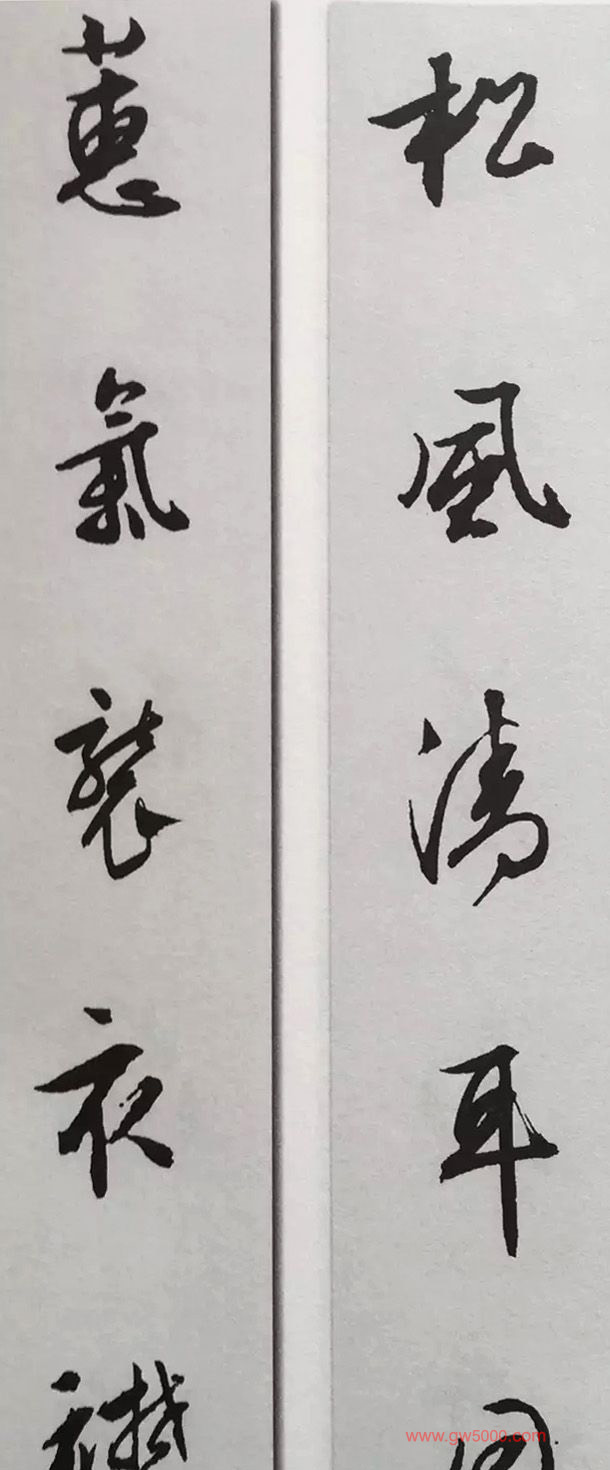 松風清耳
蕙氣襲衣
www.gw5000.com